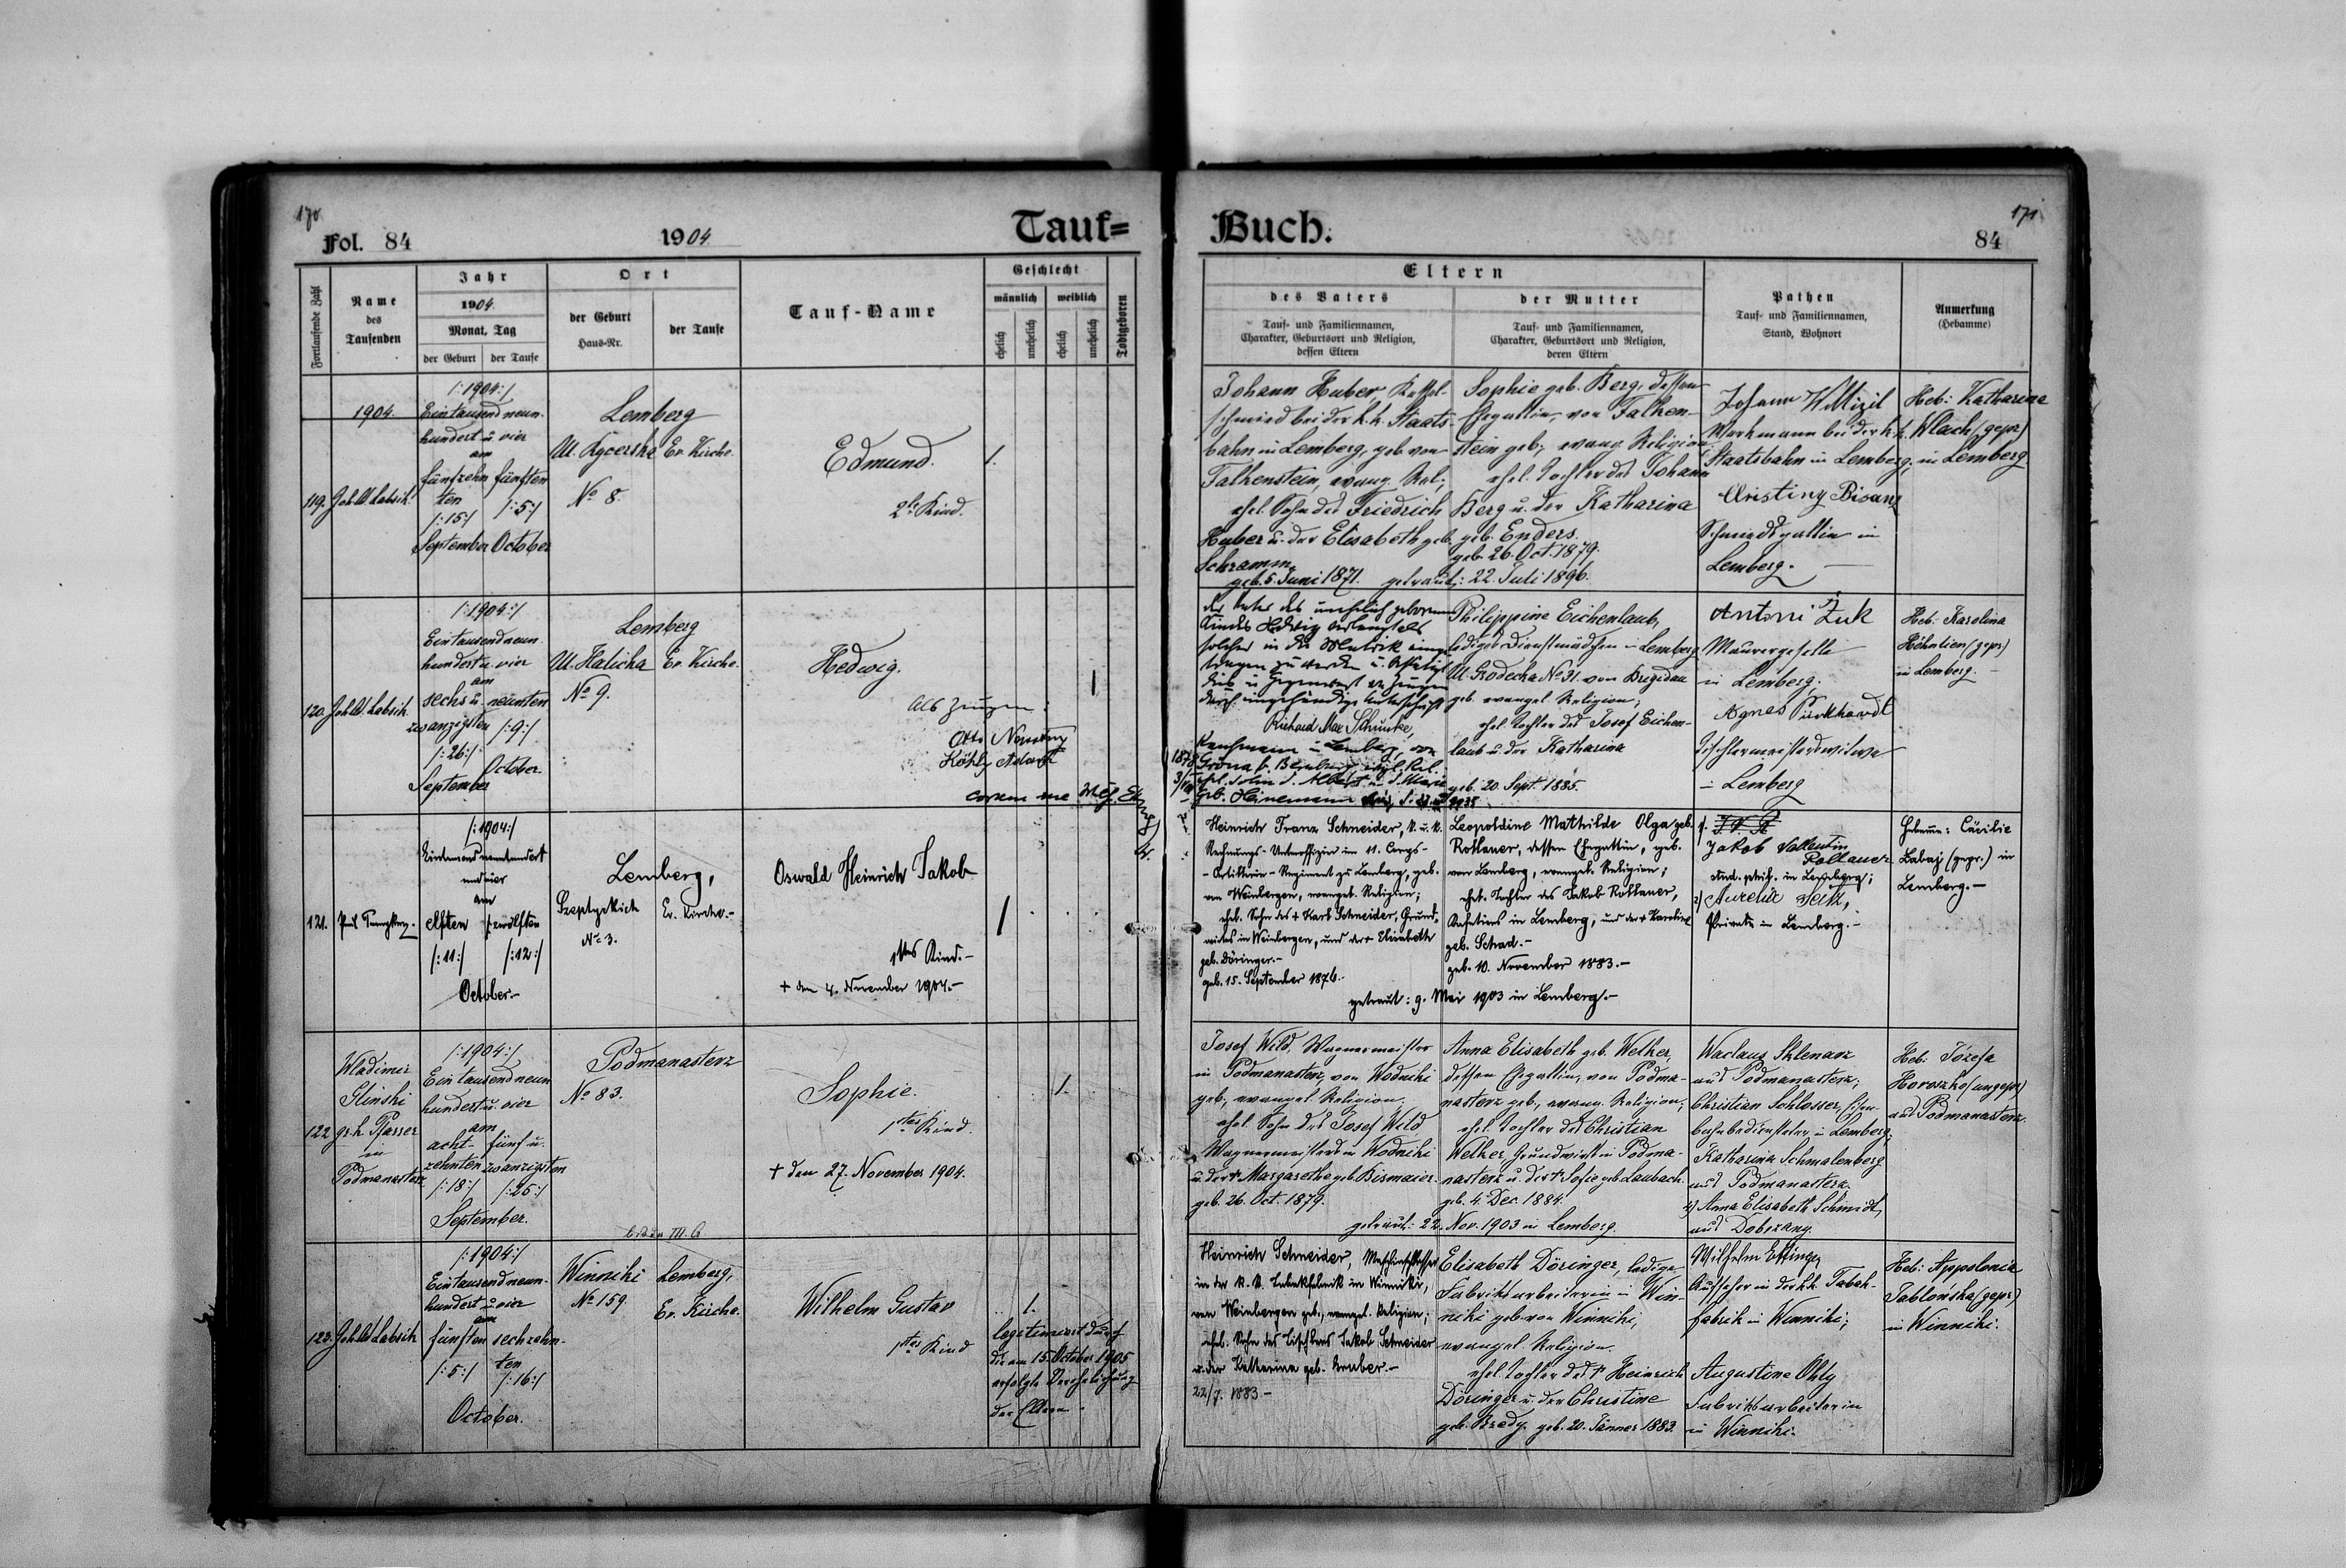 170
Fol. 84
1904
Tauf=
Fortlaufende Zahl
Name
des
Taufenden
Jahr
1904.
Monat, Tag
der Geburt
der Taufe
Ort
der Geburt
Haus-Nr.
der Taufe
Tauf-Name
Geschlecht
männlich
weiblich
ehelich
unehelich
ehelich
unehelich
Todtgeboren
1904.
119.
/:1904:/
Eintausendneun-
hundert u. vier
am
fünfzehn fünften
ten
/:15:/ /:5:/
September October
Lemberg
Ev. Kirche.
No 8.
Edmund.
2tes Kind.
1.
120.
/:1904:/
Eintausendneun-
hundert u. vier
am
sechs u. neunten
zwanzigsten /:9:/
/:26:/
October.
September
Lemberg
Ul. Halicka Ev. Kirche.
No 9.
Hedwig.
Als Zeugen:
Otto
coram me
1
121.
/:1904:/
Eintausendneunhundert
und vier
am
elften zwölften
/:11:/ /:12:/
October.-
Lemberg,
Szeptyckich Ev. Kirche.-
No 3.
Oswald Heinrich Jakob
1tes Kind.-
+ den 4. November 1904.-
1
122
Wladimir
Glinski
gr. k. Pfarrer
in
Podmanasterz
/:1904:/
Eintausendneun
hundert u. vier
am
acht- fünf u.
zehnten zwanzigsten
/:18:/ /:25:/
September.
Podmanasterz
No 83.
Sophie.
1tes Kind
+ den 27. November 1904.
1.
123.
/:1904:/
Eintausendneun-
hundert u. vier
am
fünften sechzehn-
ten
/:5:/ /:16:/
October.
Winniki Lemberg,
No 159. Ev. Kirche.
Wilhelm Gustav
1tes Kind
1.
legitimiert durch
die am 15. October 1905
erfolgte Verehelichung
der Eltern
171
Buch.
84
Eltern
des Vaters
Tauf- und Familiennamen,
Charakter, Geburtsort und Religion,
dessen Eltern
der Mutter
Tauf- und Familiennamen,
Charakter, Geburtsort und Religion,
deren Eltern
Pathen
Tauf- und Familiennamen,
Stand, Wohnort
Anmerkung
(Hebamme)
Johann Huber, Kessel-
schmied bei der k. k. Staats-
bahn in Lemberg, geb. von
Falkenstein, evang. Rel.;
ehel. Sohn des Friedrich
Huber u. der Elisabeth geb.
Schramm.
geb. 5. Juni 1871.
Sophie geb. Berg, dessen
Ehegattin, von Falken-
stein geb., evang. Religion
ehel. Tochter des Johann
Berg u. der Katharina
geb. Enders.
geb. 26. Oct. 1879.
getraut: 22. Juli 1896.
Johann
Werkmann bei der k. k.
Staatsbahn in Lemberg;
Christiny Bisanz
Schmiedsgattin in
Lemberg.
Heb: Katharina
Wlach (gepr)
in Lemberg
der Vater des unehelich geborenen
Kindes Hedwig verlangt als
solcher in die Matrik einge-
tragen zu werden u. bestätigt
dies in Gegenwart der Zeugen
durch eigenhändige Unterschrift
Richard Max
Kaufmann in Lemberg, von
Gröna b. Bernburg, evgl. Rel.
ehl. Sohn d. Albert u. d. Marie
geb. Heinemann
Philippine Eichenlaub,
lediges Dienstmädchen in Lemberg
Ul. Grodecka No 31. von Brigidau
geb. evangel. Religion;
ehel. Tochter des Josef Eichen-
laub u. der Katharina
geb. 20. Sept. 1885.
Antoni Żuk
Maurergeselle
in Lemberg;
Agnes Pürkhardt
Tischlermeisterswitwe
in Lemberg
Heb: Karolina
(gepr)
in Lemberg.
Heinrich Franz Schneider, k. u. k.
Rechnungs-Unteroffizier im 11. Corps-
-Artillerie-Regiment zu Lemberg, geb.
von Weinbergen, evangel. Religion;
ehel. Sohn des + Karl Schneider, Grund-
wirtes in Weinbergen, und der + Elisabeth
geb. Döringer.-
geb. 15. September 1876.
Leopoldine Mathilde Olga geb.
Rollauer, dessen Ehegattin, geb.
von Lemberg, evangel. Religion;
ehel. Tochter des Jakob Rollauer,
in Lemberg, und der + Karoline
geb. Schad.-
geb. 10. November 1883.-
getraut: 9. Mai 1903 in Lemberg.-
1.
Jakob Vallentin
Rollauer
stud. phil. in Lemberg;
2) Aurelie Seitz,
Private in Lemberg.-
Hebamme: Cäcilie
Babaj (gepr.) in
Lemberg.-
Josef Wild, Wagnermeister
in Podmanasterz, von Wodniki
geb., evangel. Religion.
ehel. Sohn des Josef Wild
Wagnermeisters in Wodniki
u. der + Margarethe geb. Bismaier.
geb. 26. Oct. 1879.
Anna Elisabeth geb. Welker,
dessen Ehegattin, von Podma-
nasterz geb., evang. Religion;
ehel. Tochter des Christian
Welker, Grundwirt in Podma-
nasterz u. der + Sofie geb. Laubach.
geb. 4. Dec. 1884.
getraut: 22. Nov. 1903 in Lemberg.
Waclaus Sklenarz
aus Podmanasterz;
Christian Schlosser, Eisen-
bahnbediensteter in Lemberg;
Katharina Schmalenberg
aus Podmanasterz.
2) Anna Elisabeth Schmidt,
aus Dobrzany.
Heb: Józefa
Horoszko (ungepr)
aus Podmanasterz
Heinrich Schneider, Maschinschlosser
in der k. k. Tabakfabrik in Winniki,
von Weinbergen geb., evangel. Religion;
ehel. Sohn des Tischlers Jakob Schneider
u. der Katharina geb. Gruber.-
22/7. 1883.-
Elisabeth Döringer, ledige
Fabriksarbeiterin in Win-
niki geb. von Winniki,
evangel. Religion.
ehel. Tochter des + Heinrich
Döringer u. der Christine
geb. Bredy. geb. 20. Jänner 1883.
Wilhelm Ettinger
Aufseher in der k.k. Tabak-
fabrik in Winniki;
Augustine Ohly
Fabriksarbeiterin
in Winniki.
Heb: Appolonia
Jablońska (gepr)
in Winniki.